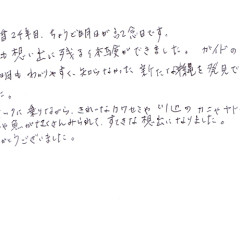 婚24年目、ちょうど明日が記念日です。
も想い出に残る体験ができました。 ガイドの
明もわかりやすく、知らなかった新たな沖縄を発見で
た。
ークに乗りながら、きれいなカワセミや川辺のカニやヤド
や魚がたくさんみられて、すてきな想出になりました。
がとうございました。